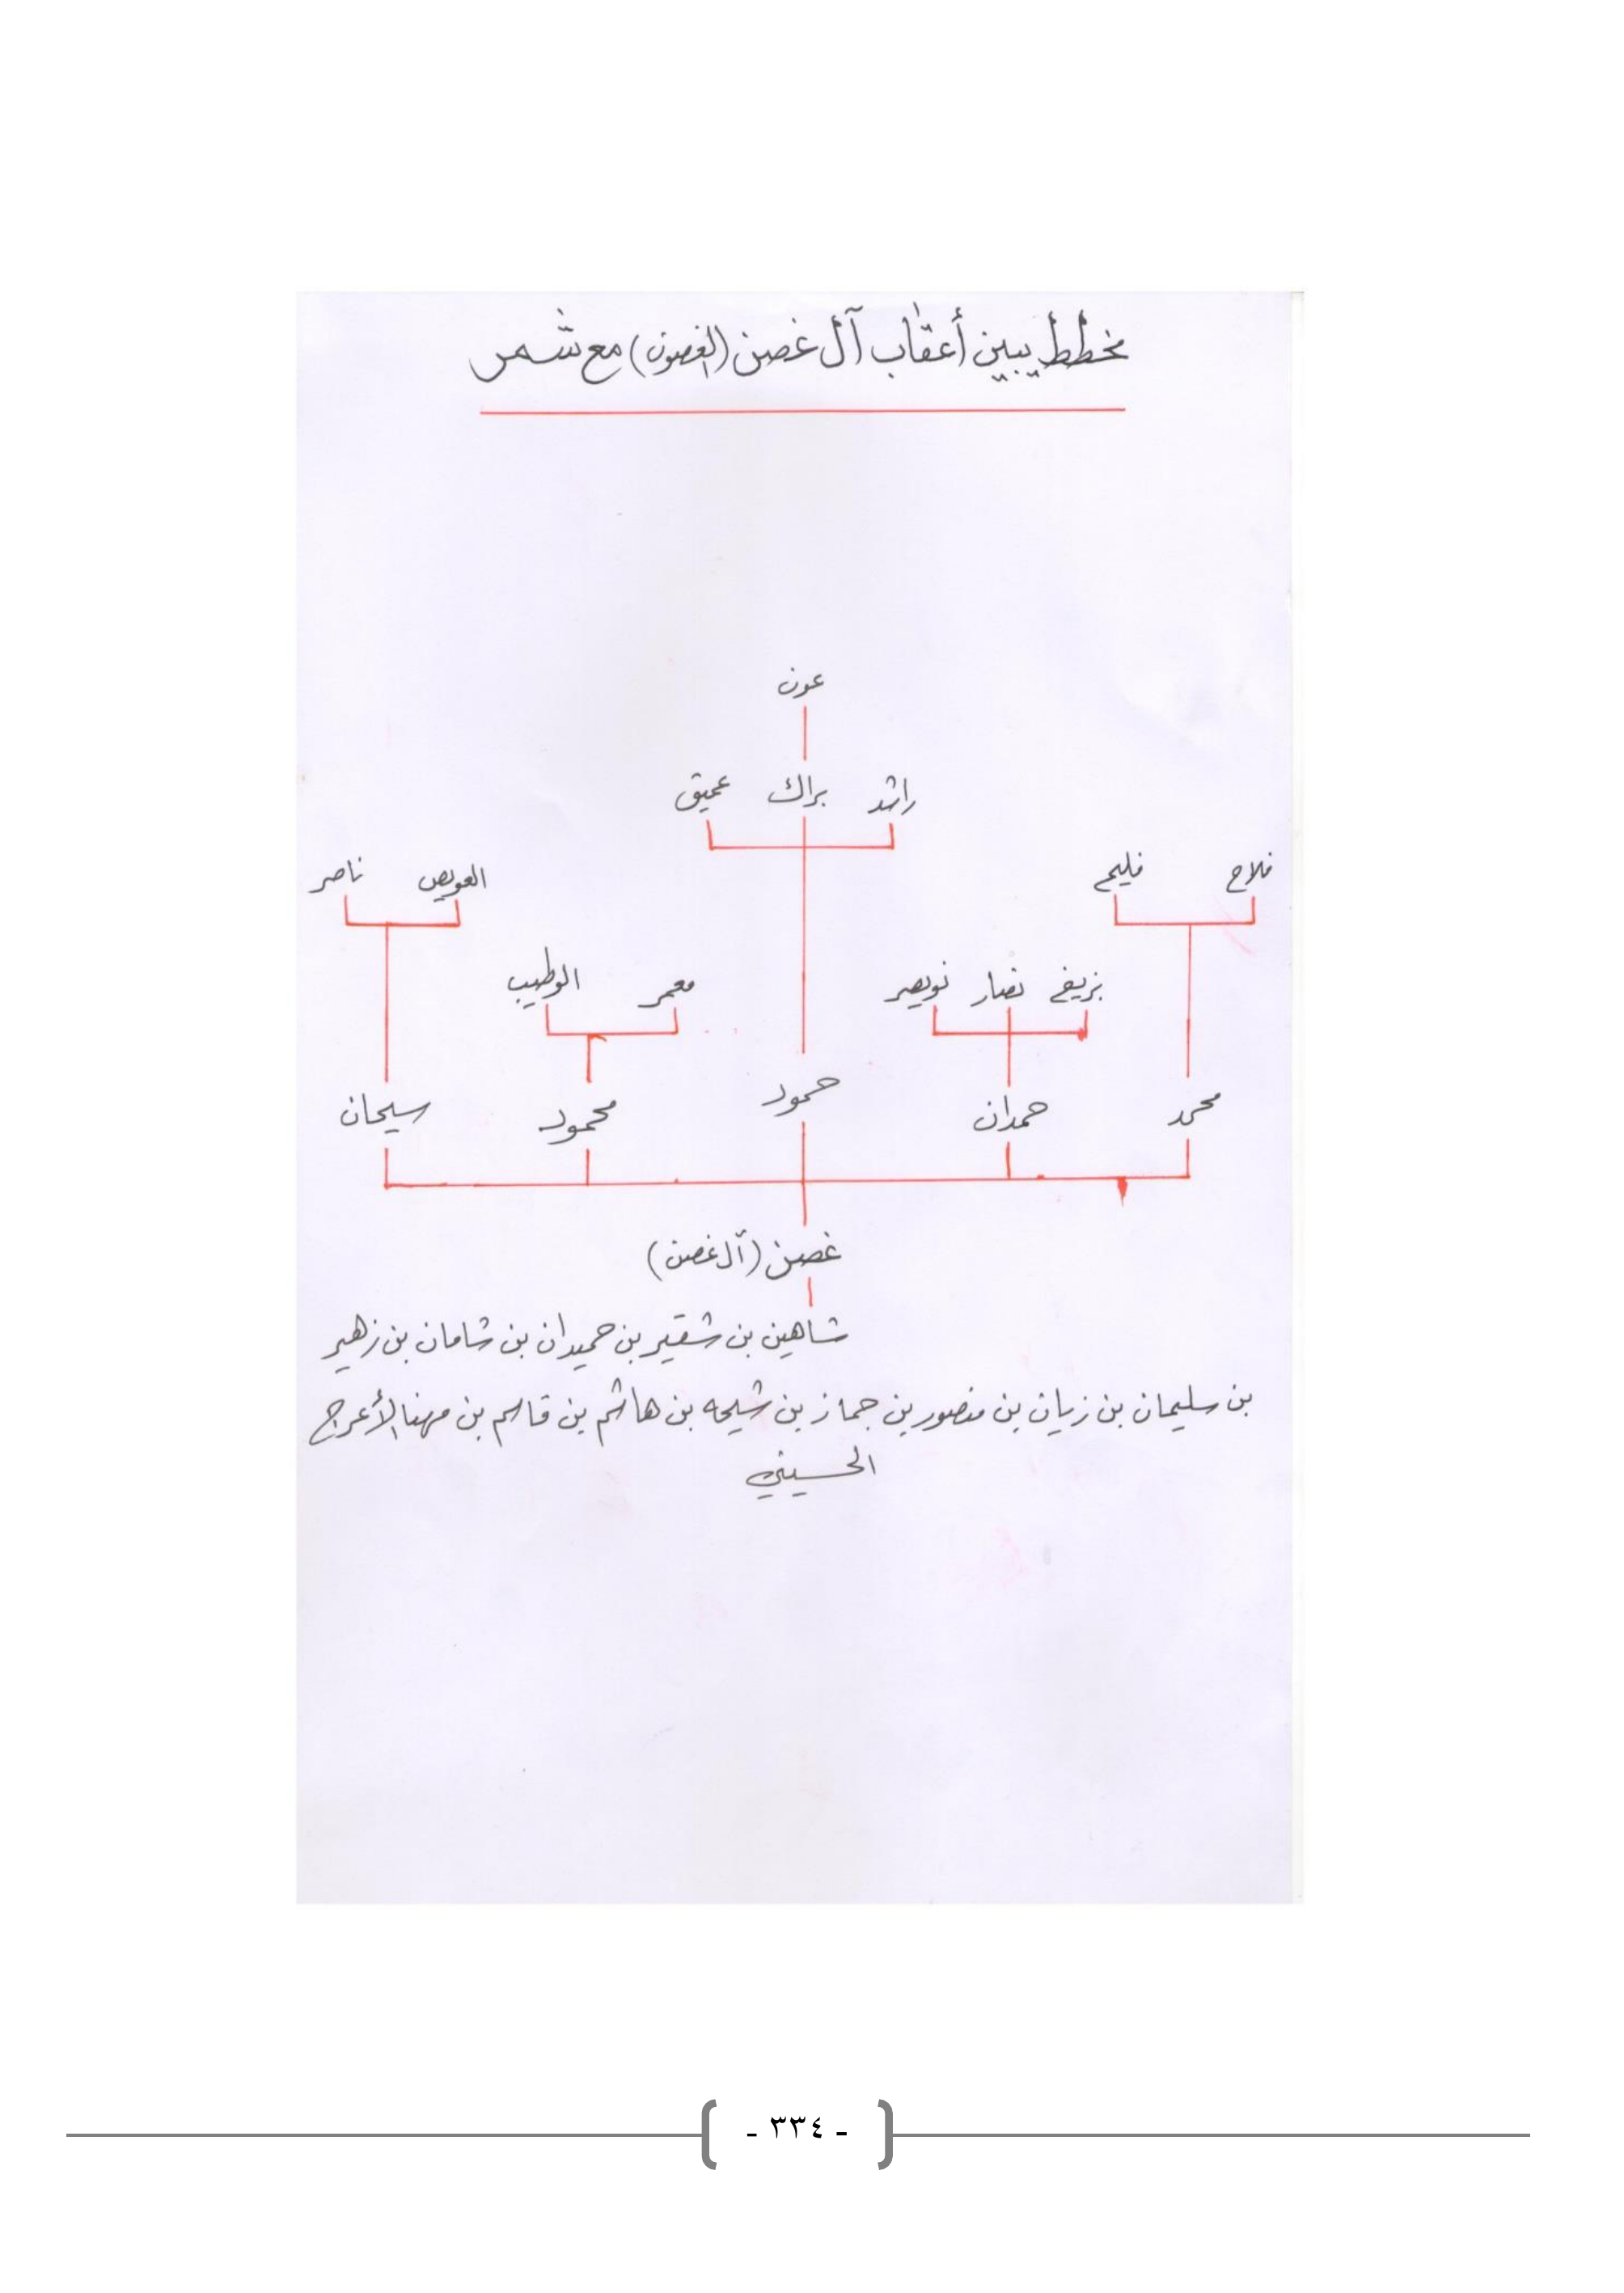 مخطط يبين أعقاب آل غصن (الغصون) مع شمر
عون
راشد براك عميق
فلاح فليح العويص ناصر
بزيغ نصار نويصر معمر الوطيب
محمد حمدان حمود محمود سيحان
غصن (آل غصن)
شاهين بن شقير بن حميدان بن شامان بن زهير
بن سليمان بن زيان بن منصور بن جماز بن شيحه بن هاشم بن قاسم بن مهنا الأعرج
الحسيني
- ٣٣٤ -